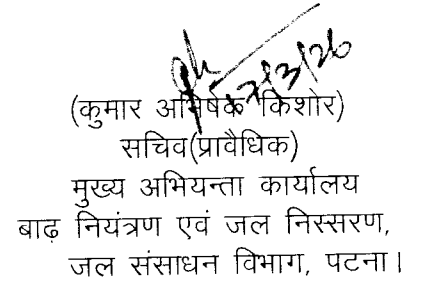 (कुमार अभिषेक किशोर)
सचिव(प्रावैधिक)
मुख्य अभियन्ता कार्यालय
बाढ़ नियंत्रण एवं जल निस्सरण,
जल संसाधन विभाग, पटना।